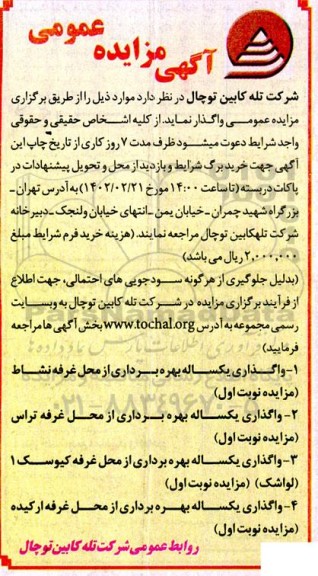 آگهی مزایده عمومی
شرکت تله کابین توچال در نظر دارد موارد ذیل را از طریق برگزاری
مزایده عمومی واگذار نماید. از کلیه اشخاص حقیقی و حقوقی
واجد شرایط دعوت میشود ظرف مدت ۷ روز کاری از تاریخ چاپ این
آگهی جهت خرید برگ شرایط و بازدید از محل و تحویل پیشنهادات در
پاکات دربسته (تا ساعت ۱۴:۰۰ مورخ ۱۴۰۲/۰۲/۲۱) به آدرس تهران -
بزرگراه شهید چمران - خیابان یمن - انتهای خیابان ولنجک - دبیرخانه
شرکت تلهکابین توچال مراجعه نمایند. (هزینه خرید فرم شرایط مبلغ
۲,۰۰۰,۰۰۰ ریال می باشد)
(بدلیل جلوگیری از هرگونه سودجویی های احتمالی، جهت اطلاع
از فرآیند برگزاری مزایده در شرکت تله کابین توچال به وبسایت
رسمی مجموعه به آدرس www.tochal.org بخش آگهی ها مراجعه
فرمایید)
۱- واگذاری یکساله بهره برداری از محل غرفه نشاط
(مزایده نوبت اول)
۲- واگذاری یکساله بهره برداری از محل غرفه تراس
(مزایده نوبت اول)
۳- واگذاری یکساله بهره برداری از محل غرفه کیوسک ۱
(لواشک) (مزایده نوبت اول)
۴- واگذاری یکساله بهره برداری از محل غرفه ارکیده
(مزایده نوبت اول)
روابط عمومی شرکت تله کابین توچال